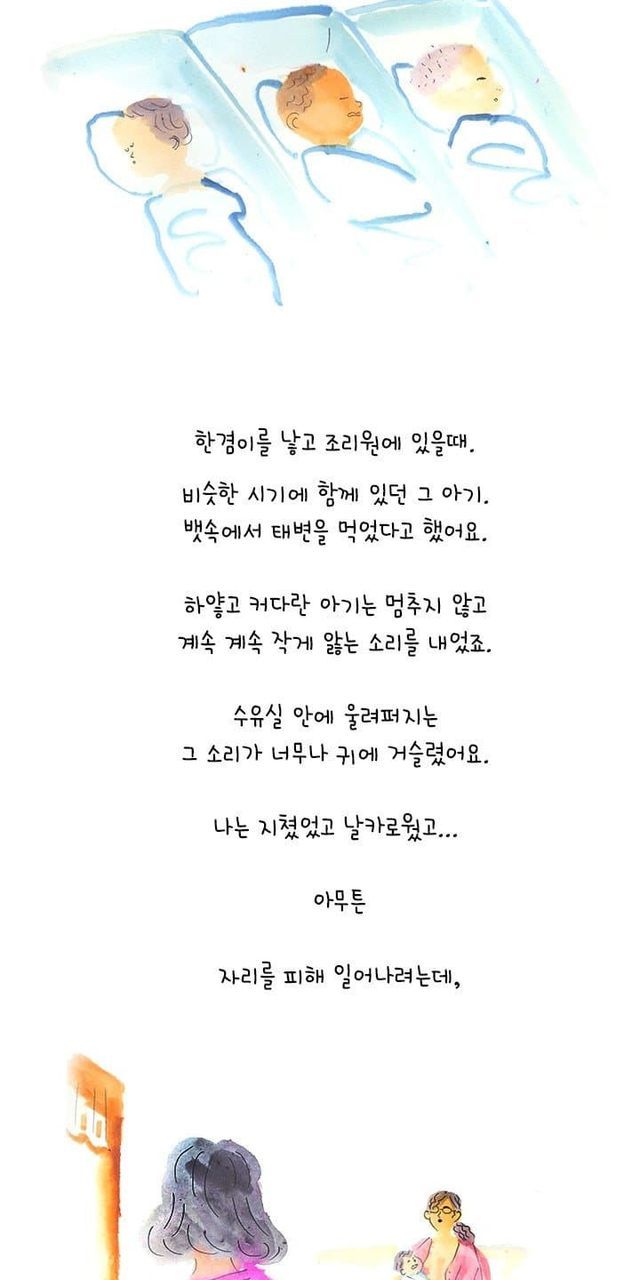 한겸이를 낳고 조리원에 있을때.
비슷한 시기에 함께 있던 그 아기.
뱃속에서 태변을 먹었다고 했어요.
하얗고 커다란 아기는 멈추지 않고
계속 계속 작게 앓는 소리를 내었죠.
수유실 안에 울려퍼지는
그 소리가 너무나 귀에 거슬렸어요.
나는 지쳤었고 날카로웠고...
아무튼
자리를 피해 일어나려는데,